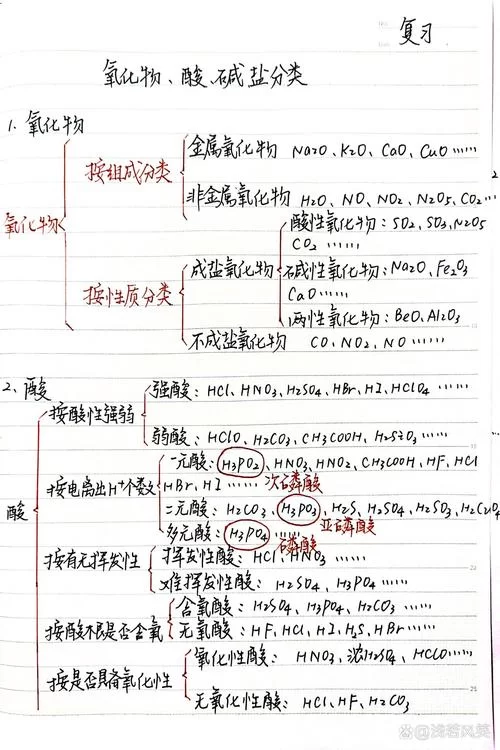 复习
氧化物、酸、碱盐分类
1. 氧化物
氧化物
按组成分类
金属氧化物 Na2O、K2O、CaO、CuO……
非金属氧化物 H2O、NO、NO2、N2O5、CO2…
按性质分类
成盐氧化物
酸性氧化物：SO2、SO3、N2O5
CO2 ……
碱性氧化物：Na2O、Fe2O3
CaO……
两性氧化物：BeO、Al2O3
不成盐氧化物 CO、NO2、NO ……
2. 酸
酸
按酸性强弱
强酸：HCl、HNO3、H2SO4、HBr、HI、HClO4 ……
弱酸：HClO、H2CO3、CH3COOH、H2SiO3……
按电离出H+个数
一元酸：H3PO2、HNO3、HNO2、CH3COOH、HF、HCl
HBr、HI …… 次磷酸
二元酸：H2CO3、H3PO3、H2S、H2SO4、H2SO3、H2C2O4
亚磷酸
多元酸：H3PO4 ……
磷酸
按有无挥发性
挥发性酸：HCl、HNO3 ……
难挥发性酸：H2SO4、H3PO4 ……
按酸根是否含氧
含氧酸：H2SO4、H3PO4、H2CO3 ……
无氧酸：HF、HCl、HI、H2S、HBr……
按是否具备氧化性
氧化性酸：HNO3、浓H2SO4、HClO……
无氧化性酸：HCl、HF、H2CO3
@浅若风芙